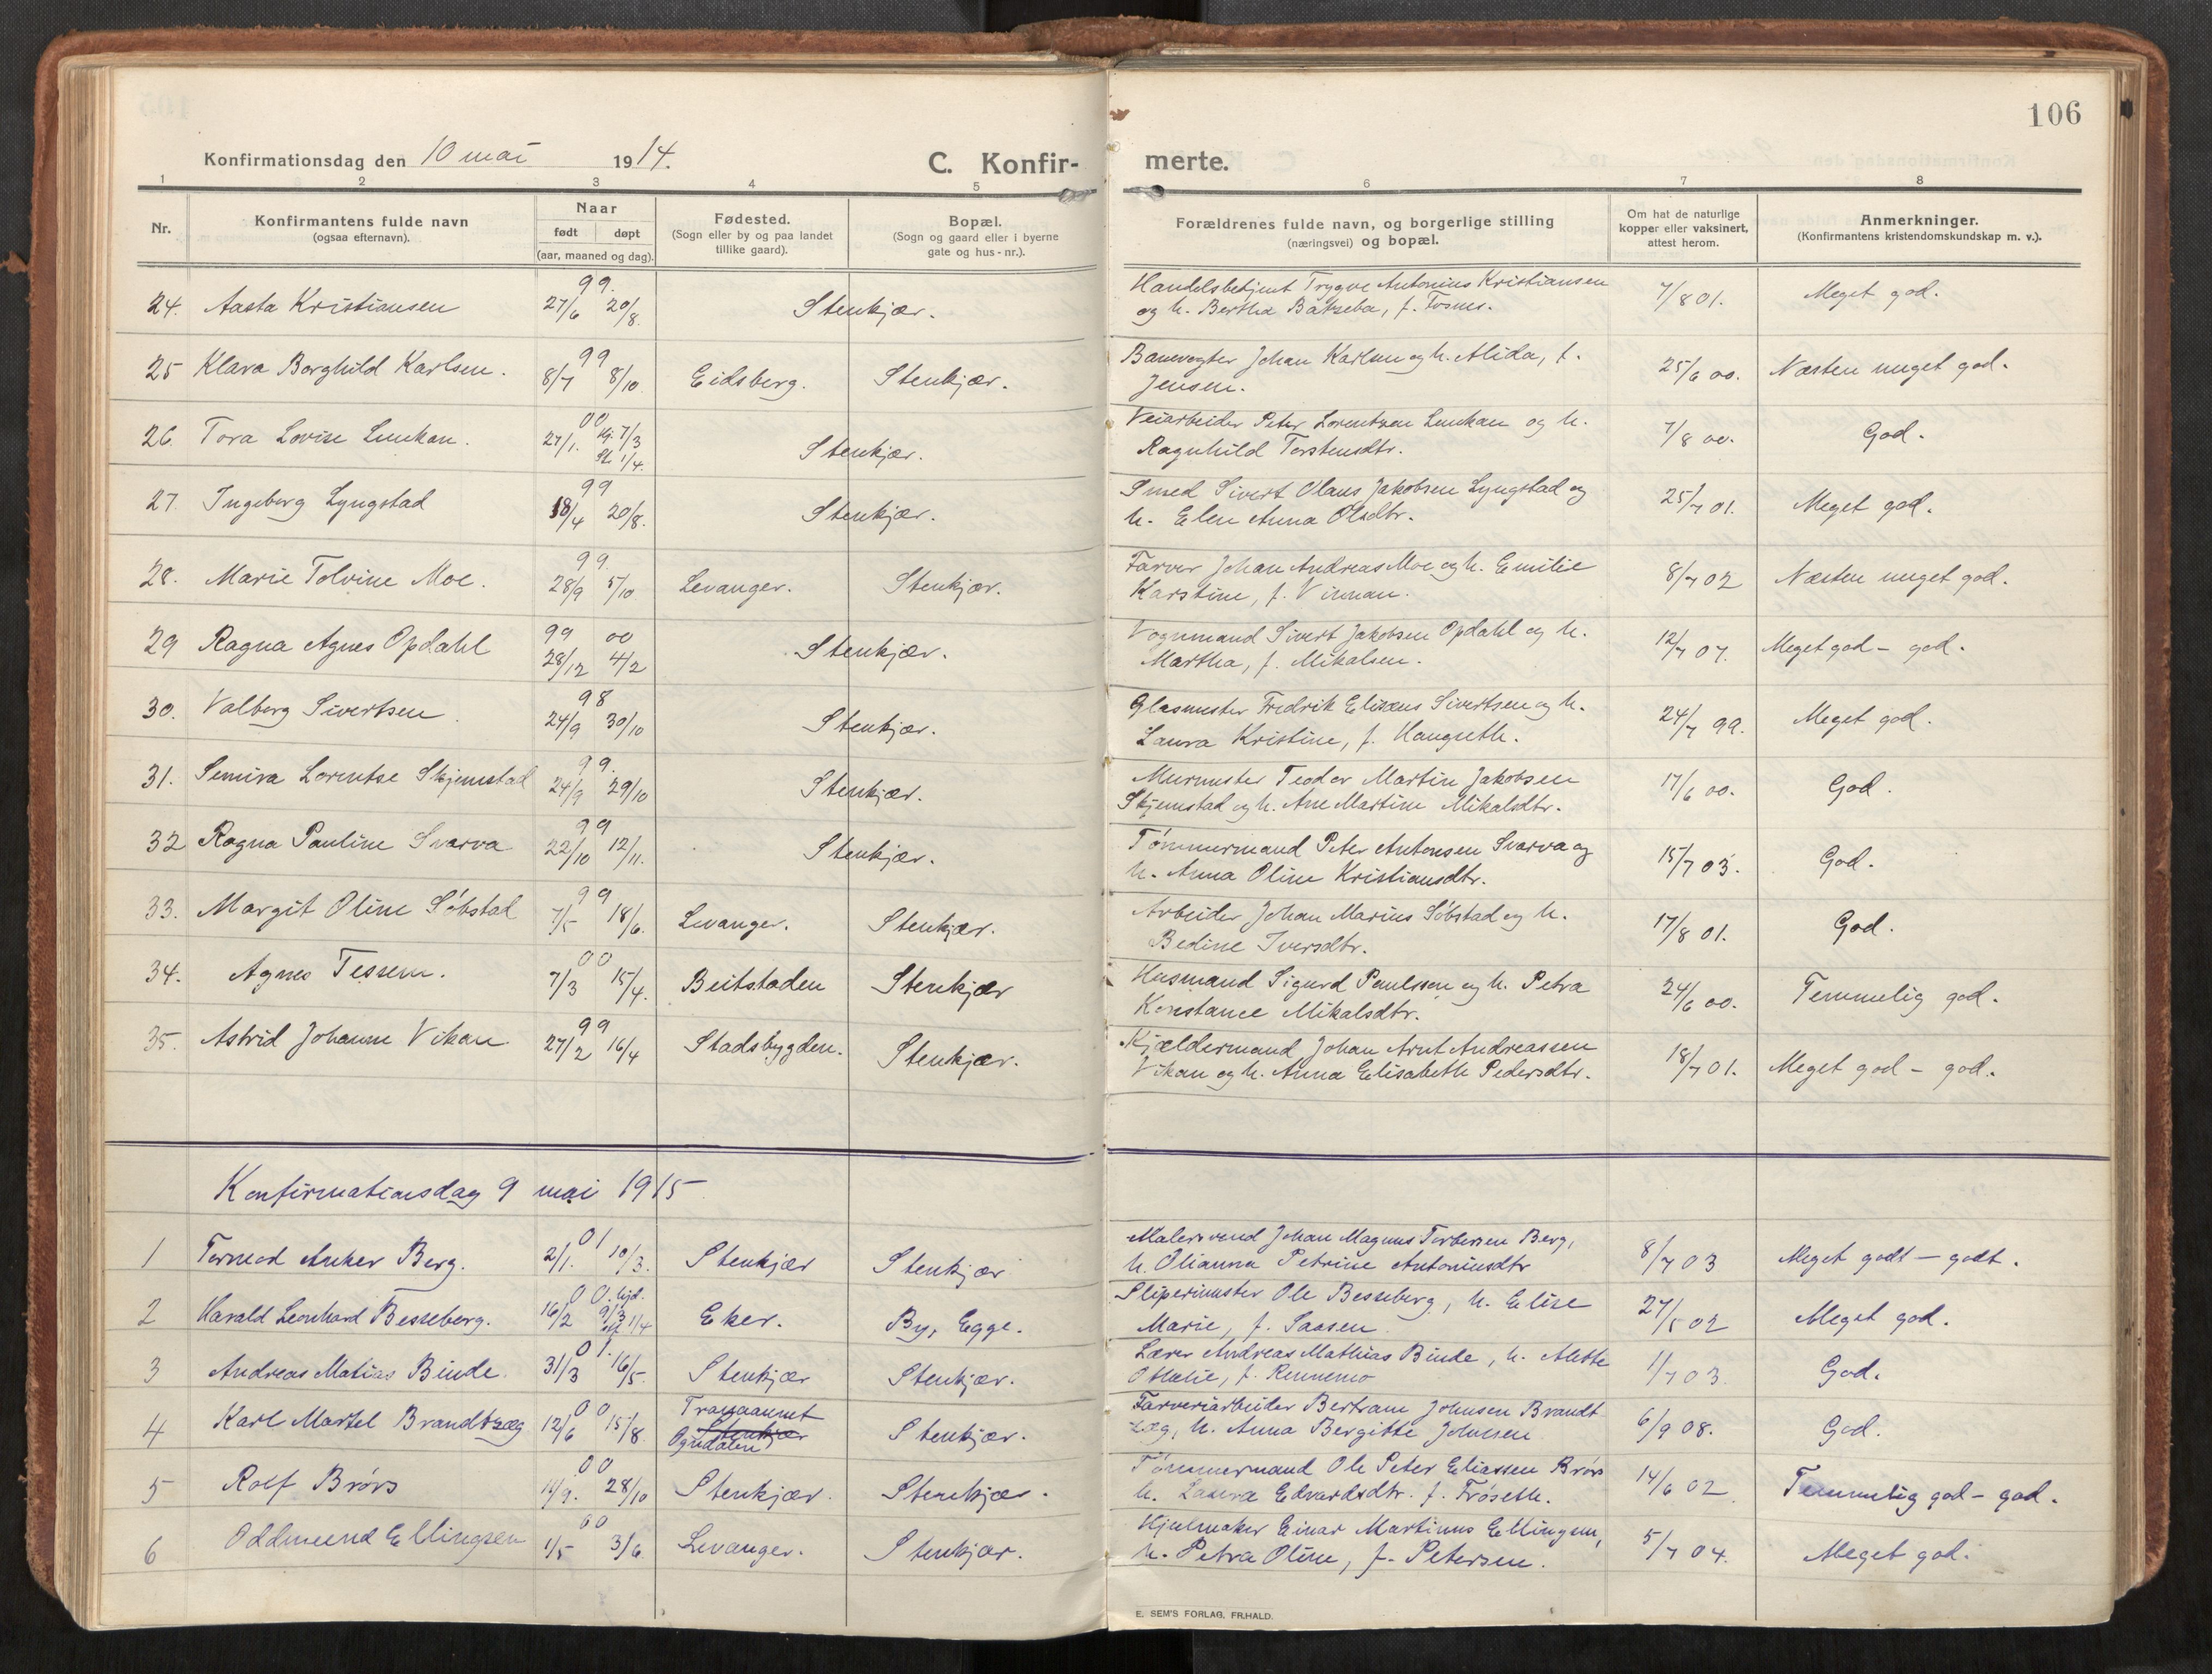 106
Konfirmationsdag den 10 mai 1914.
C. Konfir-
merte.
1 2 3 4 5 6 7 8
Nr.
Konfirmantens fulde navn
(ogsaa efternavn).
Naar
født døpt
(aar, maaned og dag).
Fødested.
(Sogn eller by og paa landet
tillike gaard).
Bopæl.
(Sogn og gaard eller i byerne
gate og hus-nr.).
Forældrenes fulde navn, og borgerlige stilling
(næringsvei) og bopæl.
Om hat de naturlige
kopper eller vaksinert,
attest herom.
Anmerkninger.
(Konfirmantens kristendomskundskap m. v.).
24. Aasta Kristiansen 99. 27/6 20/8. Stenkjær.
Handelsbetjent Trygve Antonius Kristiansen
og h. Bertha Batseba, f. Fosnes. 7/8 01. Meget god.
25 Klara Borghild Karlsen. 99 8/7 8/10. Eidsberg. Stenkjær.
Banevogter Johan Karlsen og h. Alida, f.
Jensen. 25/6 00. Næsten meget god.
26. Tora Lovise Lunkan. 00 27/1. Hj. 7/3 St. 1/4. Stenkjær.
Veiarbeider Peter Lorentzen Lunkan og h.
Ragnhild Torstensdtr. 7/8 00. God.
27. Ingeborg Lyngstad 99 18/4 20/8. Stenkjær.
Smed Sivert Olaus Jakobsen Lyngstad og
h. Elen Anna Olsdtr. 25/7 01. Meget god.
28. Marie Tolvine Moe. 99. 28/9 5/10. Levanger. Stenkjær.
Farver Johan Andreas Moe og h. Emilie
Karstine, f. Vinnan. 8/7 02 Næsten meget god.
29 Ragna Agnes Opdahl 99 00 28/12 4/2 Stenkjær.
Vognmand Sivert Jakobsen Opdahl og h.
Martha, f. Mikalsen. 12/7 07. Meget god - god.
30. Valborg Sivertsen. 98 24/9 30/10 Stenkjær.
Glasmester Fredrik Elizæus Sivertsen og h.
Laura Kristine, f. Haugseth. 24/7 99. Meget god.
31. Semira Lorentse Skjemstad 99. 24/9 29/10 Stenkjær.
Murmester Teodor Martin Jakobsen
Skjemstad og h. Ane Martine Mikalsdtr. 17/6 00. God.
32 Ragna Pauline Svarva 99 22/10 12/11. Stenkjær.
Tømmermand Peter Antonsen Svarva og
h. Anna Oline Kristiansdtr. 15/7 03. God.
33. Margit Oline Søbstad 99 7/5 18/6. Levanger. Stenkjær.
Arbeider Johan Marius Søbstad og h.
Bedine Iversdtr. 17/8 01. God.
34. Agnes Tessem. 00 7/3 15/4. Beitstaden Stenkjær
Husmand Sigurd Paulsson og h. Petra
Konstance Mikalsdtr. 24/6 00. Temmelig god.
35. Astrid Johanne Vikan 99 27/2 16/4 Stadsbygden. Stenkjær.
Kjældermand Johan Arnt Andreassen
Vikan og h. Anna Elisabeth Pedersdtr. 18/7 01. Meget god - god.
Konfirmationsdag 9 mai 1915
1 Tormod Anker Berg. 01 2/1. 10/3. Stenkjær Stenkjær
Malersvend Johan Magnus Torbersen Berg,
h. Olianna Petrine Antoniusdtr 8/7 03 Meget godt - godt.
2 Harald Leonhard Besseberg. 00. hjd. 16/2 9/3 1/4 Eker. By, Egge.
Sliperimester Ole Besseberg, h. Elise
Marie, f. Saasen. 27/5 02 Meget god.
3 Andreas Matias Binde. 01. 31/3 16/5. Stenkjær Stenkjær.
Lærer Andreas Mathias Binde, h. Alette
Othelie, f. Rennemo 1/7 03. God.
4 Karl Martel Brandtzæg 00 12/6 15/8. Stenkjær Ogndalen Stenkjær.
Farveriarbeider Bertram Johnsen Brandt
zæg, h. Anna Bergitte Johnsen. 6/9 08. God.
5 Rolf Brørs 00 11/9. 28/10 Stenkjær. Stenkjær.
Tømmermand Ole Peter Eliassen Brørs
h. Laura Edvardsdtr. f. Frøseth. 14/6 02. Temmelig god - god.
6 Oddmund Ellingsen 00 1/5 3/6 Levanger. Stenkjær.
Hjulmaker Einar Martinus Ellingsen,
h. Petra Oline, f. Petersen. 5/7 04. Meget god.
E. SEM'S FORLAG, FR.HALD.